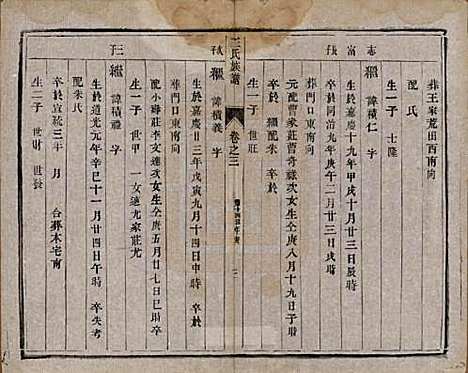 葬王家荒田西南向
配氏
生一子 士隆
志 䌫 諱積仁 字
生於嘉慶十九年甲戌十一月廿三日辰時
卒於同治九年庚午二月廿三日戌時
葬門口東南向
元配曹家莊曹奇祿次女生仝庚八月十九日子時
卒於 繼配朱 卒於
生一子 世莊
王氏族譜 卷之三
諱積義 字
生於嘉慶廿三年戊寅九月十四日申時 卒於
葬門口東南向
配小時莊李文連次女生仝庚五月廿七日巳時 卒
生一子 世甲 一女適尤家莊尤
諱積禮 字
生於道光元年辛巳十一月廿四日午時 卒失考
配朱氏
卒於宣統三年 月 合葬木宅南
生二子 世財 世發